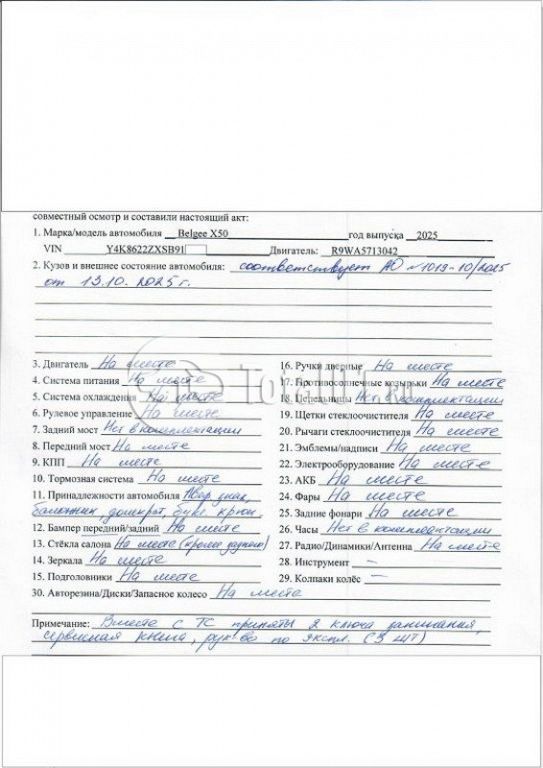 совместный осмотр и составили настоящий акт:
1. Марка/модель автомобиля Belgee X50 год выпуска 2025
VIN Y4K8622ZXSB91 Двигатель: R9WA5713042
2. Кузов и внешнее состояние автомобиля: соответствует АО №1019-10/2025
от 13.10.2025г.
3. Двигатель На месте
4. Система питания На месте
5. Система охлаждения На месте
6. Рулевое управление На месте
7. Задний мост Нет в комплектации
8. Передний мост На месте
9. КПП На месте
10. Тормозная система На месте
11. Принадлежности автомобиля Авар знак,
балонник, домкрат, букс. крюк,
12. Бампер передний/задний На месте
13. Стёкла салона На месте (кроме заднего)
14. Зеркала На месте
15. Подголовники На месте
16. Ручки дверные На месте
17. Противосолнечные козырьки На месте
18. Пепельницы Нет в комплектации
19. Щетки стеклоочистителя На месте
20. Рычаги стеклоочистителя На месте
21. Эмблемы/надписи На месте
22. Электрооборудование На месте
23. АКБ На месте
24. Фары На месте
25. Задние фонари На месте
26. Часы Нет в комплектации
27. Радио/Динамики/Антенна На месте
28. Инструмент —
29. Колпаки колёс —
30. Авторезина/Диски/Запасное колесо На месте
Примечание: Вместе с ТС приняты 2 ключа зажигания,
сервисная книга, рук-во по экспл. (3 шт)